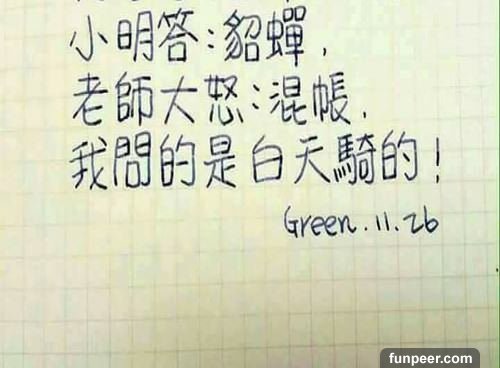 小明答：貂蟬，
老師大怒：混帳，
我問的是白天騎的！
Green.11.26
funpeer.com